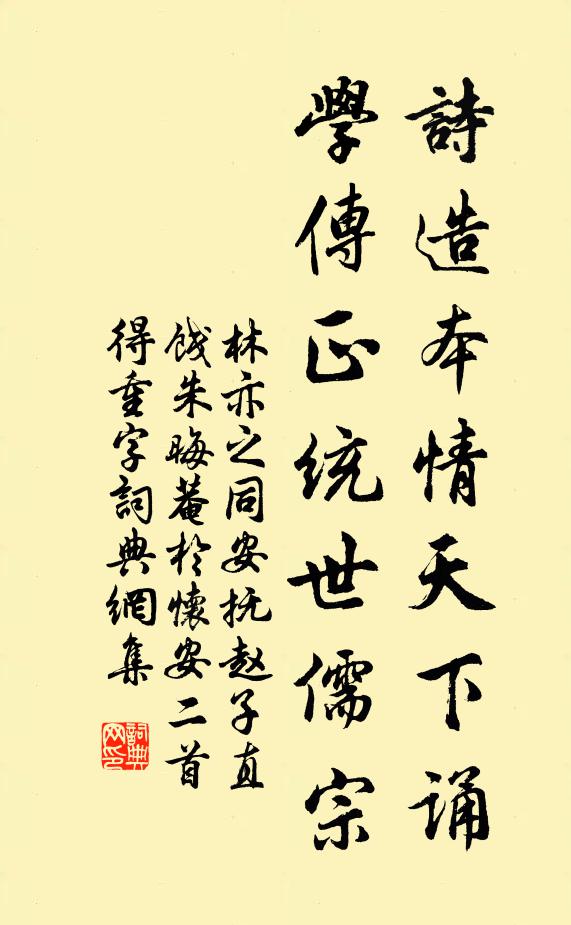 詩造本情天下诵
學傳正统世儒宗
林亦之同安抚赵子直
饯朱晦菴於懷安二首
得重字詞典網集
詞典網印